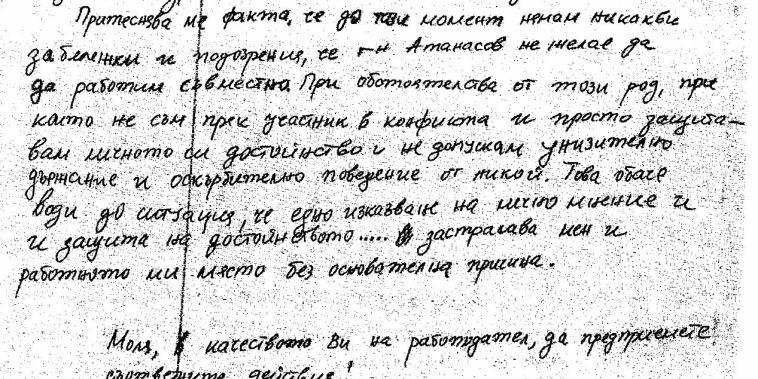 Притеснява ме факта, че до този момент нямам никакви
забележки и подозрения, че г-н Атанасов не желае да
да работим съвместно. При обстоятелства от този род, при
които не съм пряк участник в конфликта и просто защита-
вам личното си достойнство и не допускам унизително
държание и оскърбително поведение от никой. Това обаче
води до ситуация, че едно изказване на лично мнение и
и защита на достойнството..... застрашава мен и
работното ми място без основателна причина.
Моля, в качеството Ви на работодател, да предприемете
съответните действия!